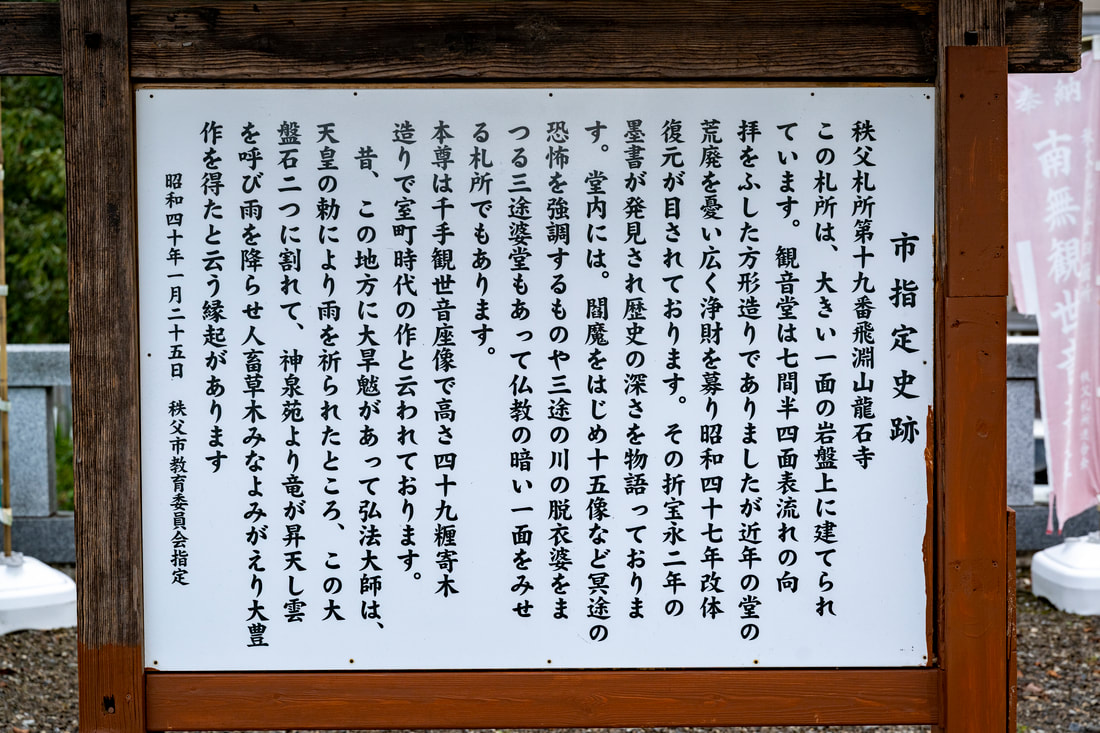 市指定史跡
秩父札所第十九番飛淵山龍石寺
この札所は、大きい一面の岩盤上に建てられ
ています。観音堂は七間半四面表流れの向
拝をふした方形造りでありましたが近年の堂の
荒廃を憂い広く浄財を募り昭和四十七年改体
復元が目されております。その折宝永二年の
墨書が発見され歴史の深さを物語っておりま
す。堂内には。閻魔をはじめ十五像など冥途の
恐怖を強調するものや三途の川の脱衣婆をま
つる三途婆堂もあって仏教の暗い一面をみせ
る札所でもあります。
本尊は千手観世音座像で高さ四十九糎寄木
造りで室町時代の作と云われております。
昔、この地方に大旱魃があって弘法大師は、
天皇の勅により雨を祈られたところ、この大
盤石二つに割れて、神泉苑より竜が昇天し雲
を呼び雨を降らせ人畜草木みなよみがえり大豊
作を得たと云う縁起があります
昭和四十年一月二十五日 秩父市教育委員会指定
奉納
南無観世音